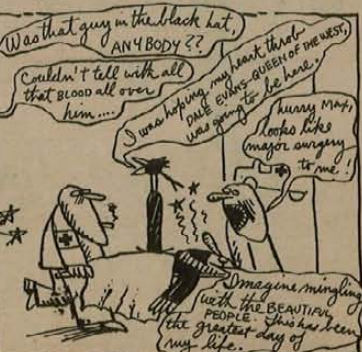 Was that guy in the black hat,
ANYBODY??
Couldn't tell with all
that BLOOD all over
him....
I was hoping my heart throb
DALE EVANS-QUEEN OF THE WEST,
was going to be here.
hurry MAX,
looks like
major surgery
to me!
Imagine mingling
with the BEAUTIFUL
PEOPLE. This has been
the greatest day of
my life.